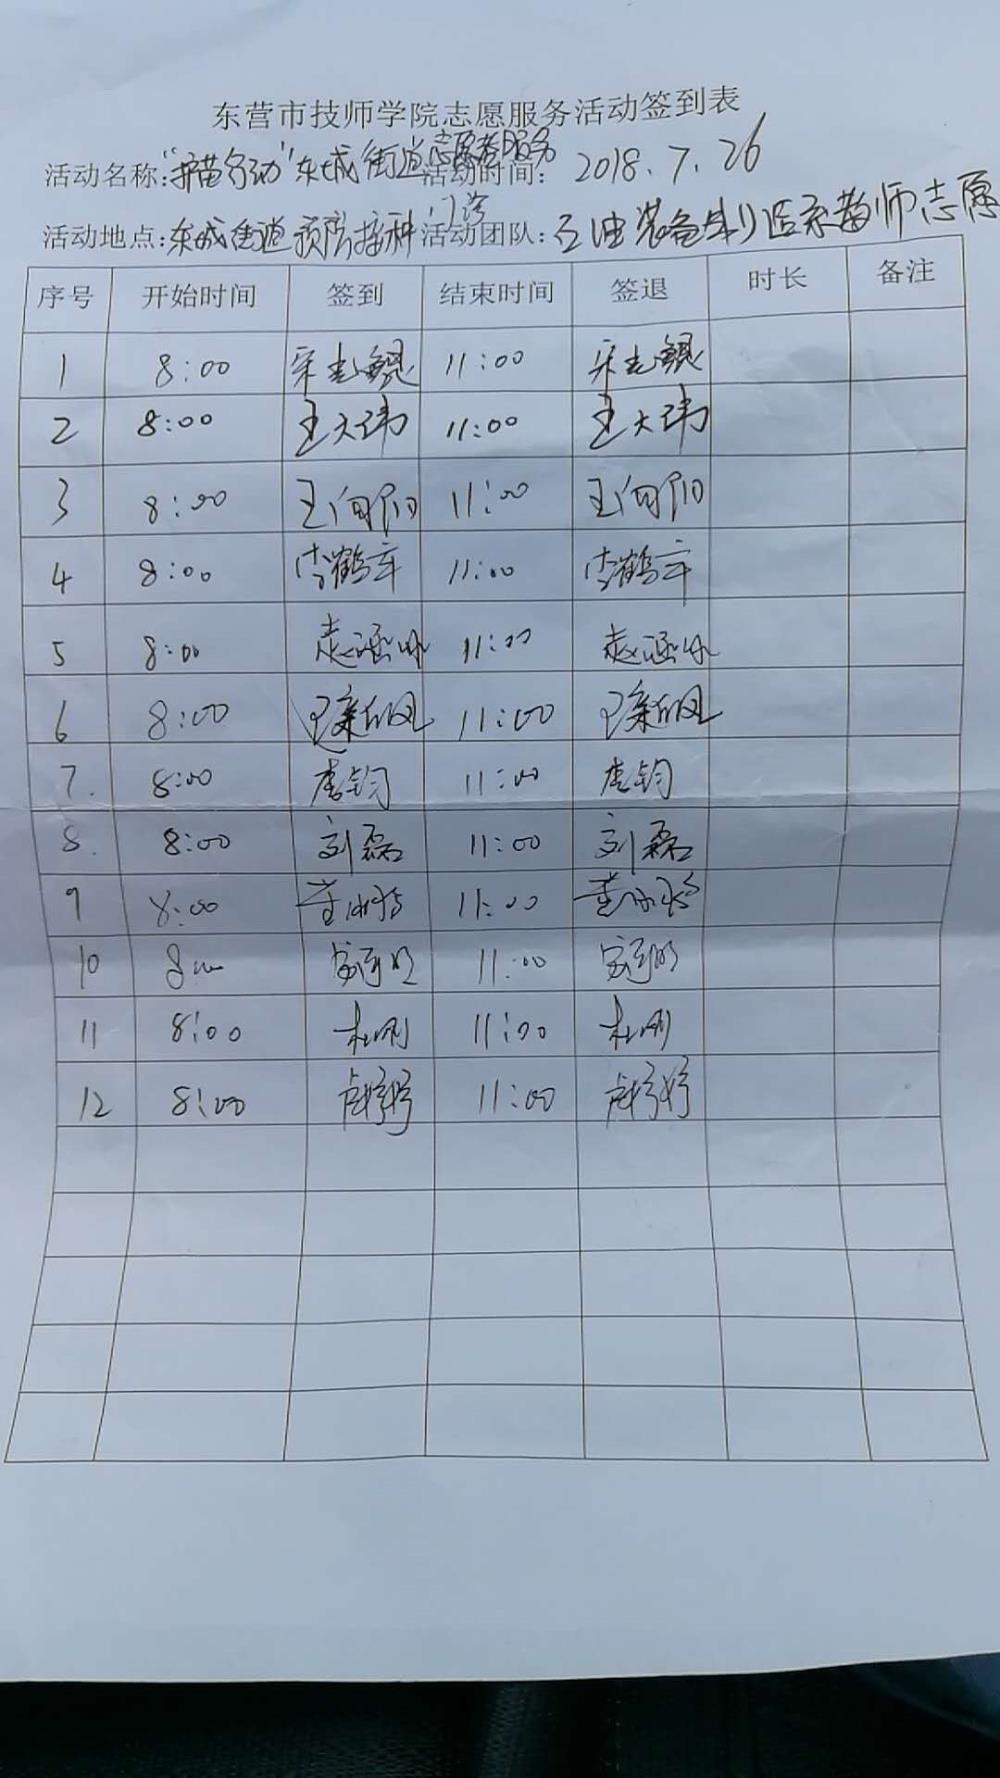 东营市技师学院志愿服务活动签到表
活动名称:"护苗行动"东城街道志愿者服务 活动时间: 2018.7.26
活动地点:东城街道预防接种门诊 活动团队:石油装备制造系教师志愿
序号 开始时间 签到 结束时间 签退 时长 备注
1 8:00 11:00
2 8:00 王大伟 11:00 王大伟
3 8:00 王向阳 11:00 王向阳
4 8:00 李鹤 11:00 李鹤
5 8:00 赵涵 11:00 赵涵
6 8:00 11:00
7. 8:00 唐钧 11:00 唐钧
8. 8:00 刘磊 11:00 刘磊
9 8:00 董 11:00 董
10 8:00 11:00
11 8:00 杜刚 11:00 杜刚
12 8:00 卢婷婷 11:00 卢婷婷